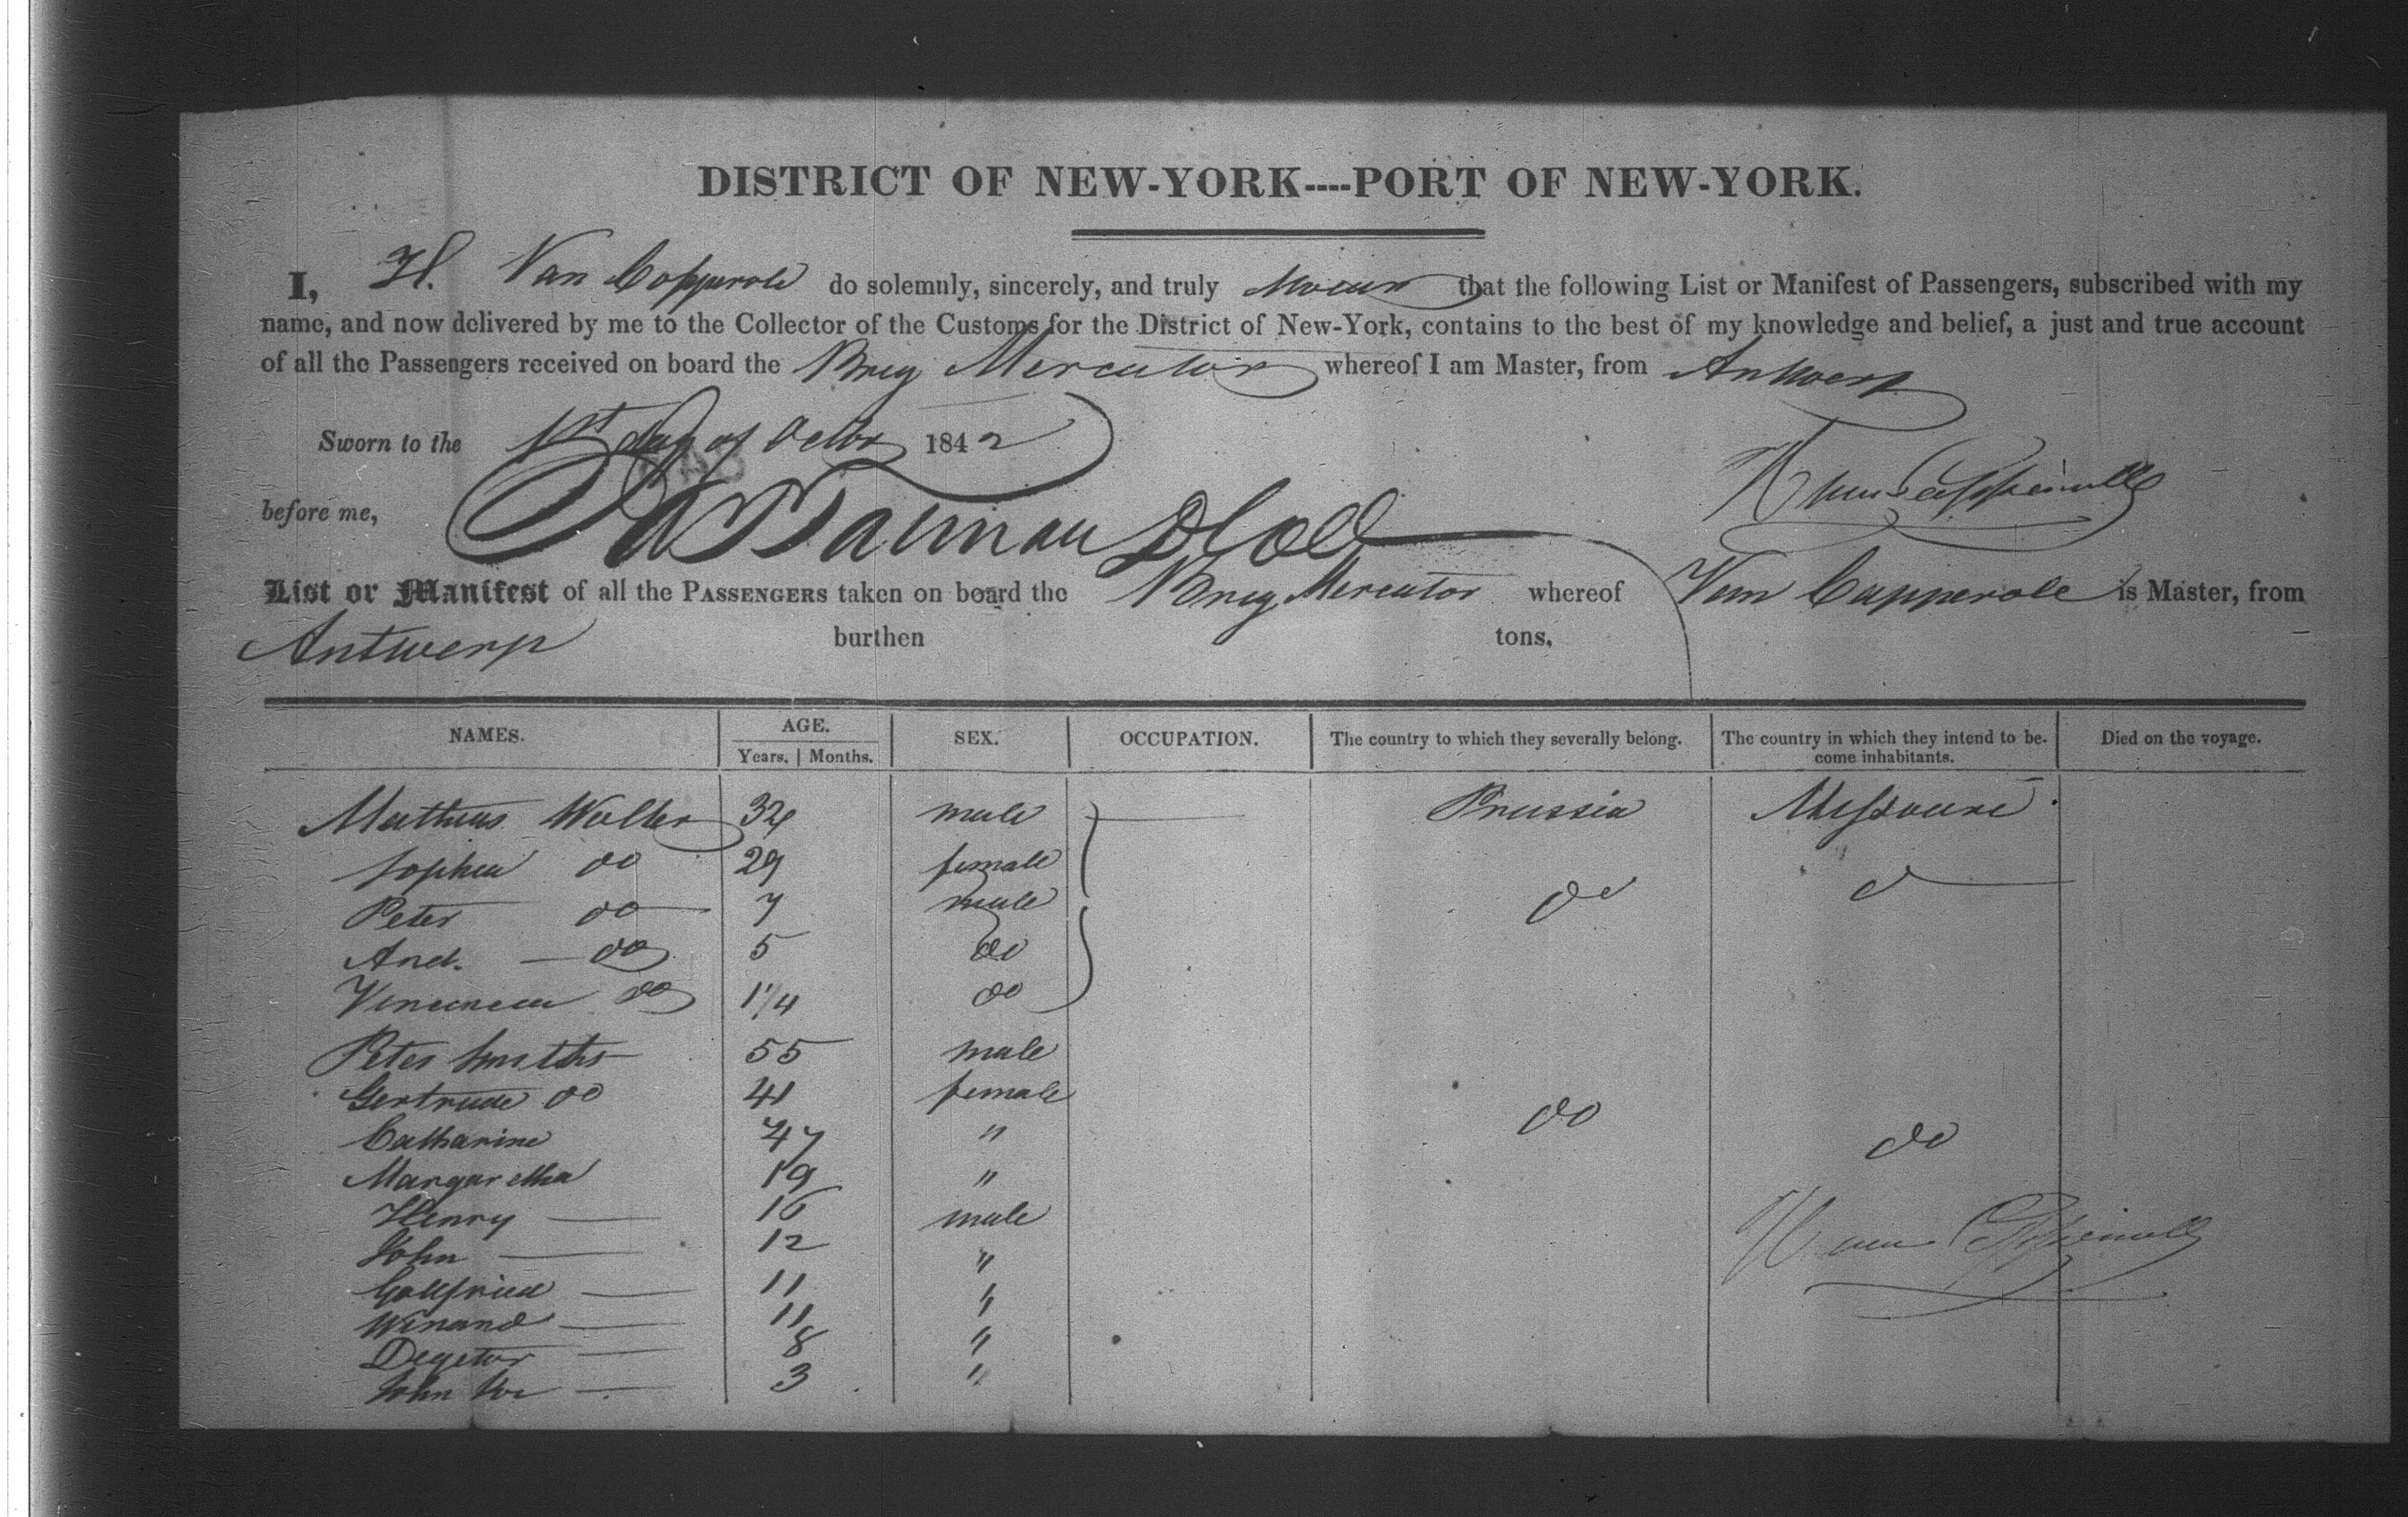 DISTRICT OF NEW-YORK----PORT OF NEW-YORK.
I, H. Van Copperole do solemnly, sincerely, and truly swear that the following List or Manifest of Passengers, subscribed with my
name, and now delivered by me to the Collector of the Customs for the District of New-York, contains to the best of my knowledge and belief, a just and true account
of all the Passengers received on board the Brig Mercator whereof I am Master, from Antwerp
Sworn to the 1st day of Octbr 1842
before me,
List or Manifest of all the PASSENGERS taken on board the Brig Mercator whereof Van Capperole is Master, from
Antwerp burthen tons,
NAMES. AGE. SEX. OCCUPATION. The country to which they severally belong. The country in which they intend to be-come inhabitants. Died on the voyage.
Years. | Months.
Mathias Walter 34 male Prussia Missouri
Sophia do 29 female
Peter do 7 male do d
And. do 5 do
do 1 1/4 do
Peter Smiths 55 male
Gertrude do 41 female
Catharine 47 "
Margaretha 19 "
Henry 16 male
John 12 "
Gottfried 11 "
Winand 11 "
8 "
John 3 "
do do